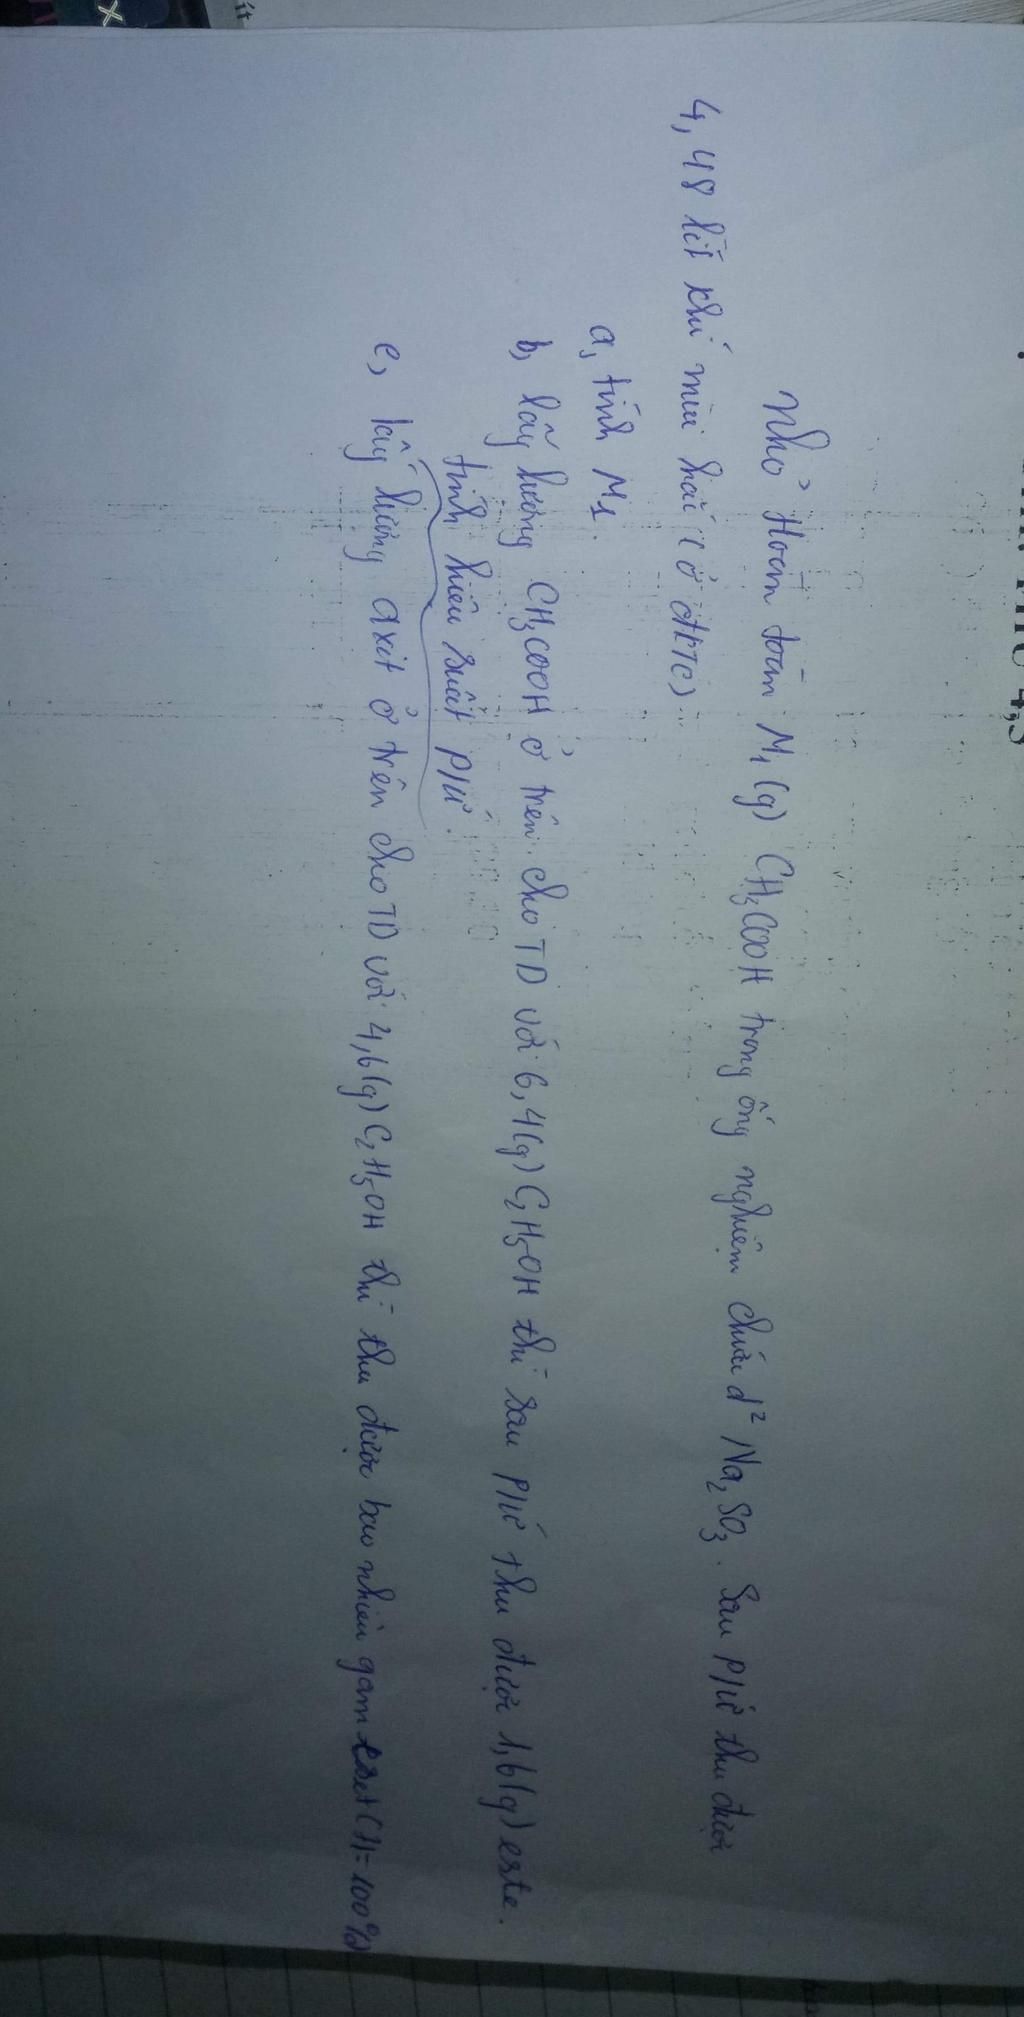 Nhỏ Hoàn toàn M₁(g) CH₃COOH trong ống nghiệm chứa d² Na₂SO₃. Sau P/Ứ thu được
4,48 lít khí mùi hắc (ở đktc)
a, tính M₁.
b, lấy lượng CH₃COOH ở trên cho TD với 6,4(g) C₂H₅OH thì sau P/Ứ thu được 1,6(g) este.
tính hiệu suất P/Ứ.
c, lấy lượng axit ở trên cho TD với 4,6(g) C₂H₅OH thì thu được bao nhiêu gam este (H=100%)